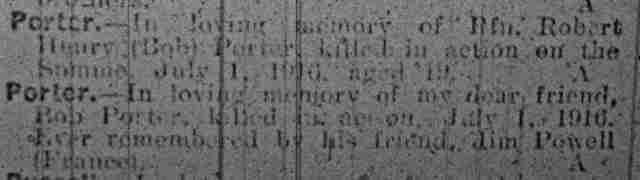 A
Porter.—In loving memory of Rfn. Robert
Henry (Bob) Porter, killed in action on the
Somme, July 1, 1916, aged 19. A
Porter.—In loving memory of my dear friend,
Bob Porter, killed in action, July 1, 1916.
Ever remembered by his friend, Jim Powell
(France). A